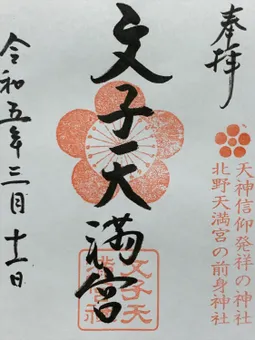 奉拝
天神信仰発祥の神社
北野天満宮の前身神社
文子天満宮
令和五年三月十一日
文子天
満宮社